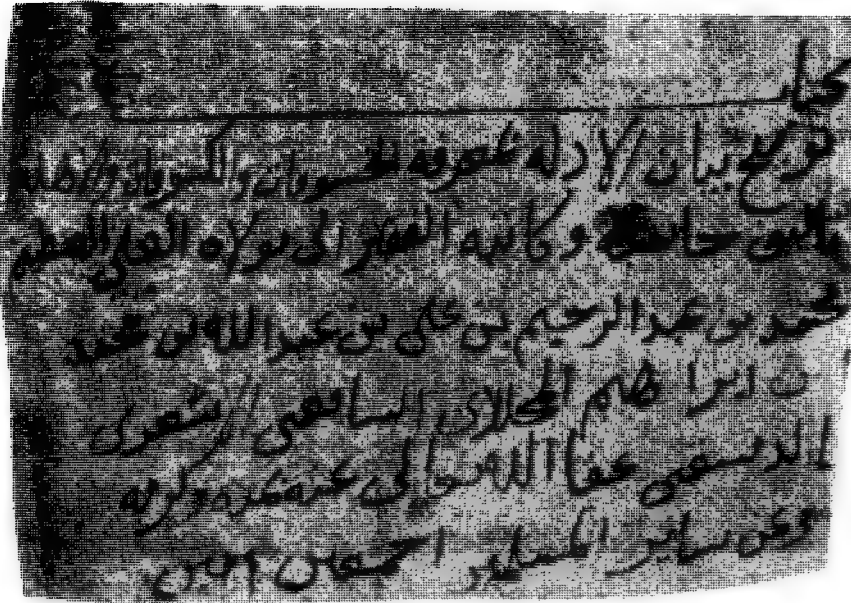 كتاب
توضيح بيان الادله لمعرفه الخسوفات والكسوفات والاهله
تاليف جامعه وكاتبه الفقير الى مولاه العلي العظيم
محمد بن عبد الرحيم بن علي بن عبد الله بن محمد
بن ابراهيم المحلاوي الشافعي الاشعري
الدمشقي عفا الله تعالى عنه بمنه وكرمه
وعن ساير المسلمين اجمعين امين